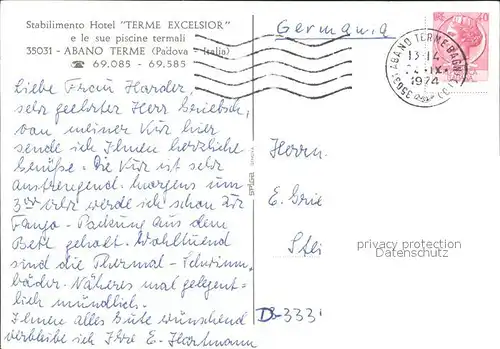 Stabilimento Hotel "TERME EXCELSIOR"
e le sue piscine termali
35031 - ABANO TERME (Padova - Italia)
☎ 69.085 - 69.585
Liebe Frau Harder,
sehr geehrter Herr Griebsch,
von meiner Kur hier
sende ich Ihnen herzliche
Grüße. Die Kur ist sehr
anstrengend. Morgens um
3 Uhr werde ich schon zur
Fango-Packung aus dem
Bett geholt. Wohltuend
sind die Thermal-Schwimm-
bäder. Näheres mal gelegent-
lich mündlich.
Ihnen alles Gute wünschend
verbleibe ich Ihre E. Hartmann
Germania
40
35031 ABANO TERME BAGNI
13-14
IX
1974
Herrn
E. Grie
privacy protection
Datenschutz
D-333